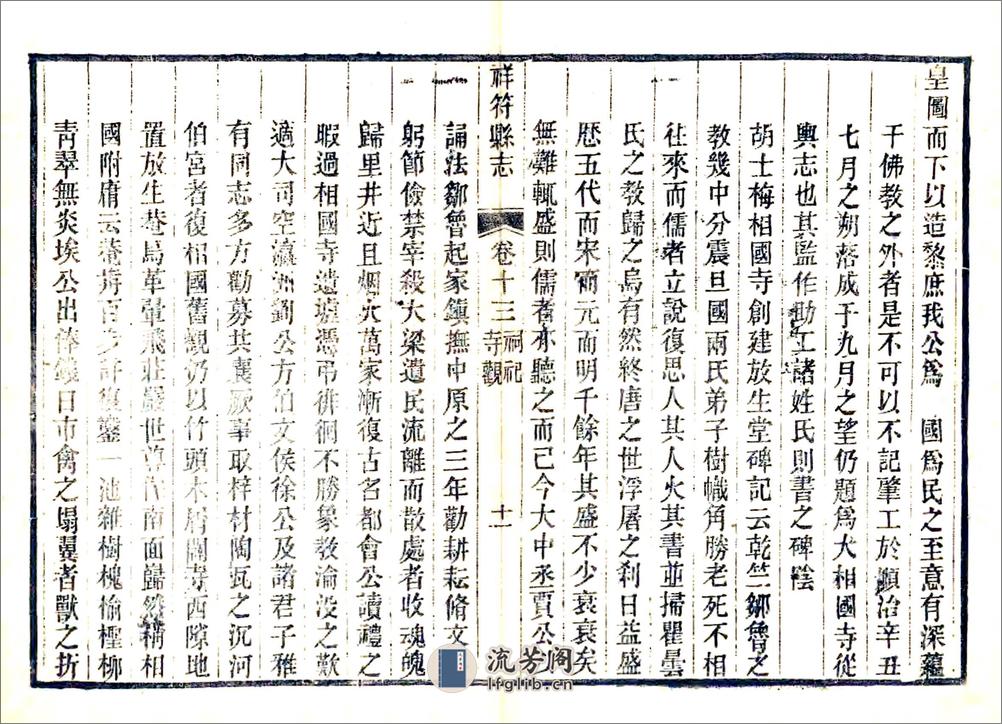 皇圖而下以造黎庶我公為　國為民之至意有深蘊
于佛教之外者是不可以不記肇工於順治辛丑
七月之朔落成于九月之望仍題為大相國寺從
輿志也其監作助工諸姓氏則書之碑陰
胡士梅相國寺創建放生堂碑記云乾竺鄒魯之
教幾中分震旦國兩氏弟子樹幟角勝老死不相
往來而儒者立說復思人其人火其書並掃瞿曇
氏之教歸之烏有然終唐之世浮屠之刹日益盛
歷五代而宋而元而明千餘年其盛不少衰衰矣
無難輒盛則儒者亦聽之而已今大中丞賈公
祥符縣志　卷十三　祠祀　寺觀　十一
誦法鄒魯起家鎮撫中原之三年勸耕耘脩文
躬節儉禁宰殺大梁遺民流離而散處者收魂魄
歸里井近且烟火萬家漸復古名都會公讀禮之
暇過相國寺遺墟憑弔徘徊不勝象教淪没之歎
適大司空瀛洲劉公方伯文侯徐公及諸君子雅
有同志多方勸募共襄厥事取梓材陶瓦之沉河
伯宮者復相國舊觀仍以竹頭木屑闢寺西隙地
置放生菴鳥革翬飛莊嚴世尊像南面巋然稱相
國附庸云菴旁百步許復鑿一池雜樹槐榆檉柳
靑翠無炎埃公出俸錢日市禽之塌翼者獸之折
流芳阁
lfglib.cn